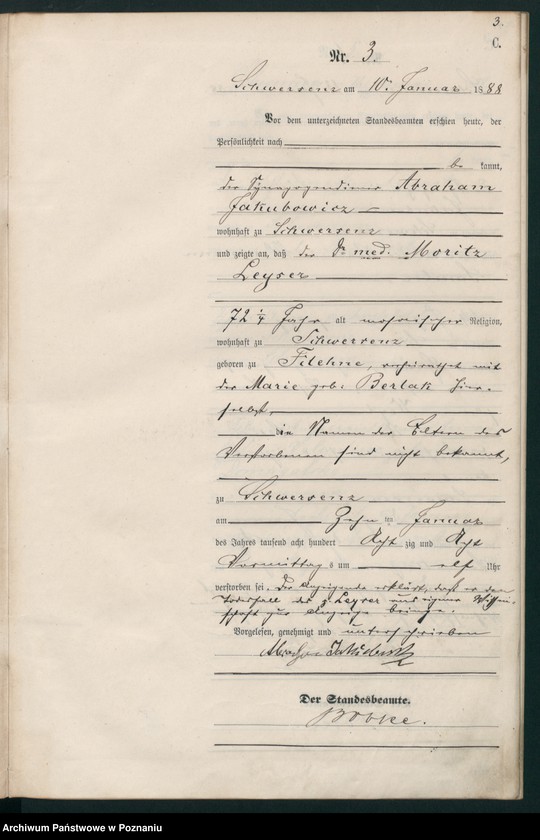 3.
C.
Nr. 3.
Schwersenz am 10. Januar 1888
Vor dem unterzeichneten Standesbeamten erschien heute, der
Persönlichkeit nach
be kannt,
der Synagogendiener Abraham
Jakubowicz
wohnhaft zu Schwersenz
und zeigte an, daß der Dr. med. Moritz
Leyser
72 1/4 Jahr alt mosaischer Religion,
wohnhaft zu Schwersenz
geboren zu Filehne, verheirathet mit
der Marie geb. Berlak hier-
selbst,
die Namen der Eltern des
Verstorbenen sind nicht bekannt,
zu Schwersenz
am Zehn ten Januar
des Jahres tausend acht hundert Acht zig und Acht
Vormittag s um elf Uhr
verstorben sei. Der Anzeigende erklärt, daß er den
Todesfall des p. Leyser aus eigener Wissen-
schaft zur Anzeige bringe.
Vorgelesen, genehmigt und unterschrieben
Abraham Jakubowicz
Der Standesbeamte.
Archiwum Państwowe w Poznaniu